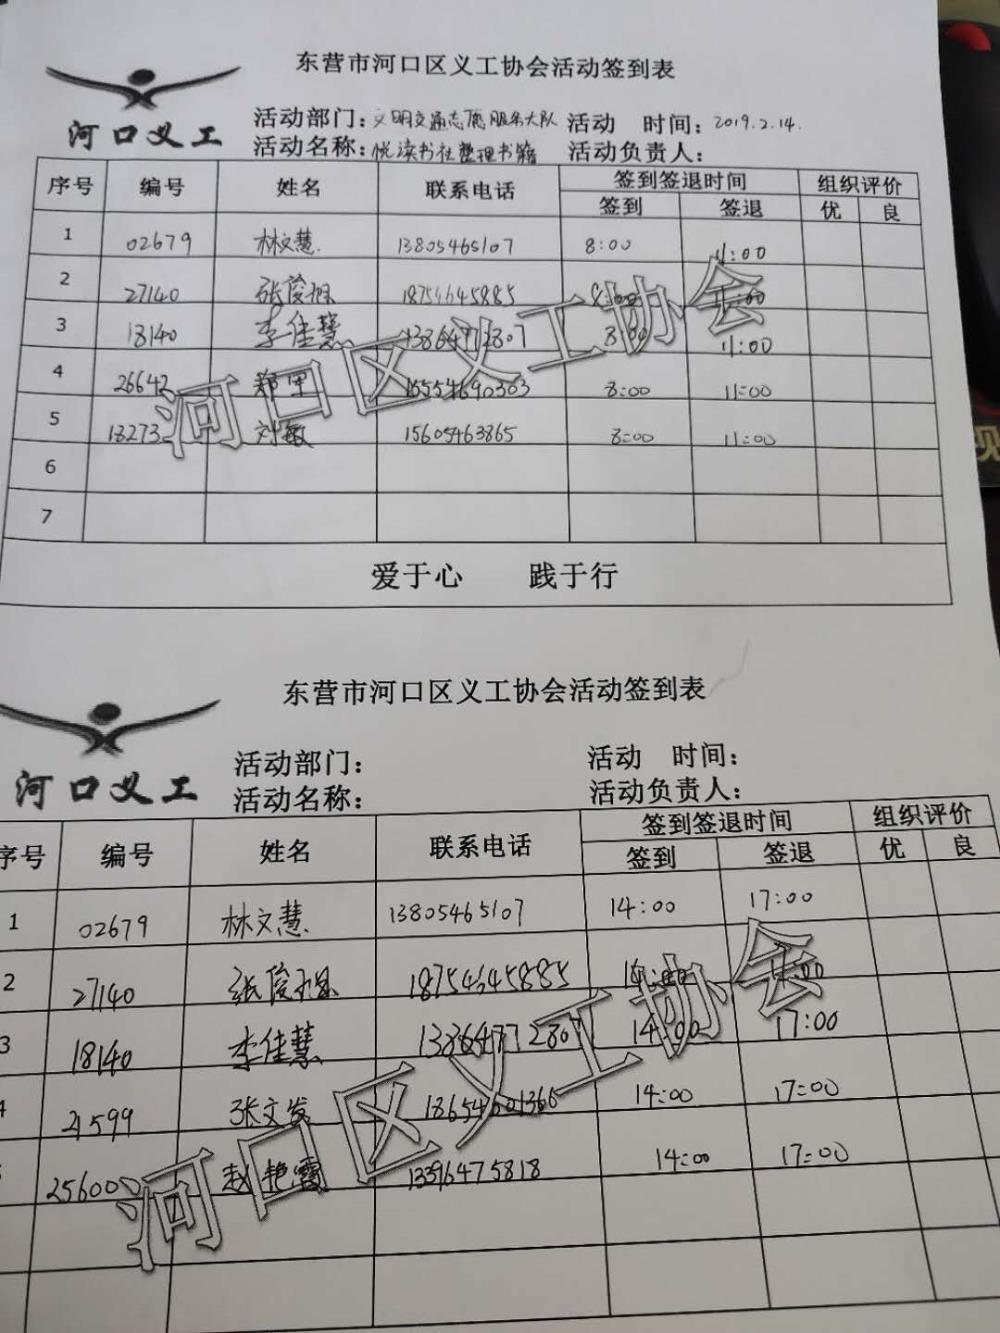 东营市河口区义工协会活动签到表
河口义工
活动部门：文明交通志愿服务大队 活动 时间：2019.2.14.
活动名称：悦读书社整理书籍 活动负责人：
序号 编号 姓名 联系电话 签到签退时间 组织评价
签到 签退 优 良
1 02679 林文慧 13805465107 8:00 11:00
2 27140 张俊 18754645885 8:00 11:00
3 18140 李佳慧 13864772807 8:00 11:00
4 26642 郑里 15554690303 8:00 11:00
5 18273 刘敏 15605463865 8:00 11:00
6
7
爱于心 践于行
河口区义工协会
东营市河口区义工协会活动签到表
河口义工
活动部门： 活动 时间：
活动名称： 活动负责人：
序号 编号 姓名 联系电话 签到签退时间 组织评价
签到 签退 优 良
1 02679 林文慧 13805465107 14:00 17:00
2 27140 张俊 18754645885 14:00 17:00
3 18140 李佳慧 13864772807 14:00 17:00
4 21599 张文发 18654601366 14:00 17:00
25600 赵艳霞 13396475818 14:00 17:00
河口区义工协会
现